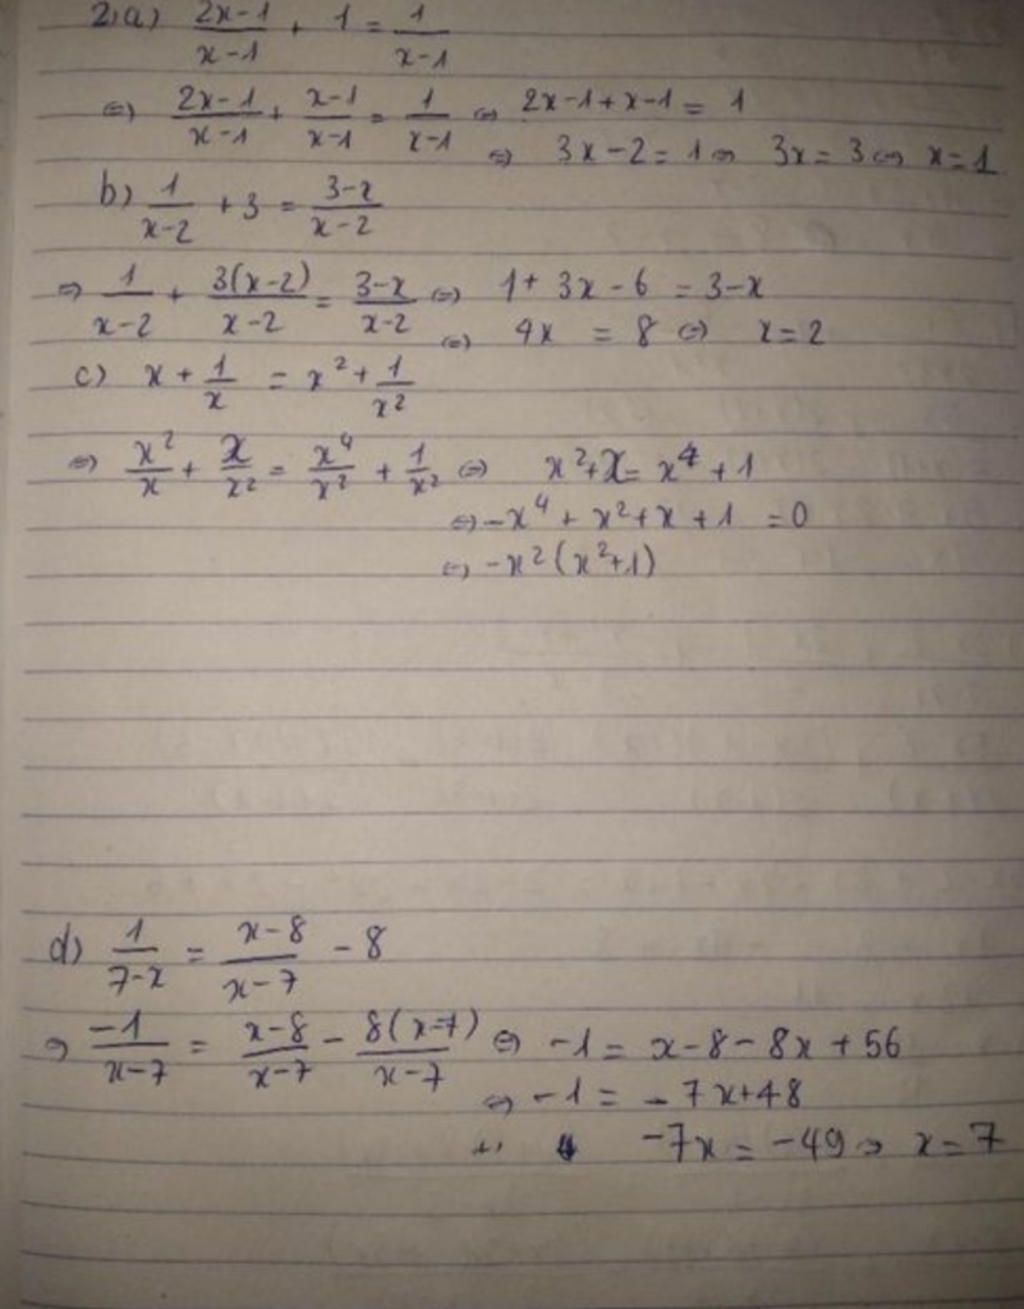 2,a) (2x-1)/(x-1) + 1 = 1/(x-1)
⇔ (2x-1)/(x-1) + (x-1)/(x-1) = 1/(x-1) ⇔ 2x-1+x-1 = 1
⇔ 3x-2 = 1 ⇔ 3x = 3 ⇔ x = 1
b) 1/(x-2) + 3 = (3-x)/(x-2)
⇔ 1/(x-2) + 3(x-2)/(x-2) = (3-x)/(x-2) ⇔ 1 + 3x - 6 = 3-x
⇔ 4x = 8 ⇔ x = 2
c) x + 1/x = x² + 1/x²
⇔ x²/x + x/x² = x⁴/x² + 1/x² ⇔ x²+x = x⁴ + 1
⇔ -x⁴ + x² + x + 1 = 0
⇔ -x²(x²+1)
d) 1/(7-x) = (x-8)/(x-7) - 8
⇔ -1/(x-7) = (x-8)/(x-7) - 8(x-7)/(x-7) ⇔ -1 = x-8-8x+56
⇔ -1 = -7x+48
-7x = -49 ⇔ x = 7